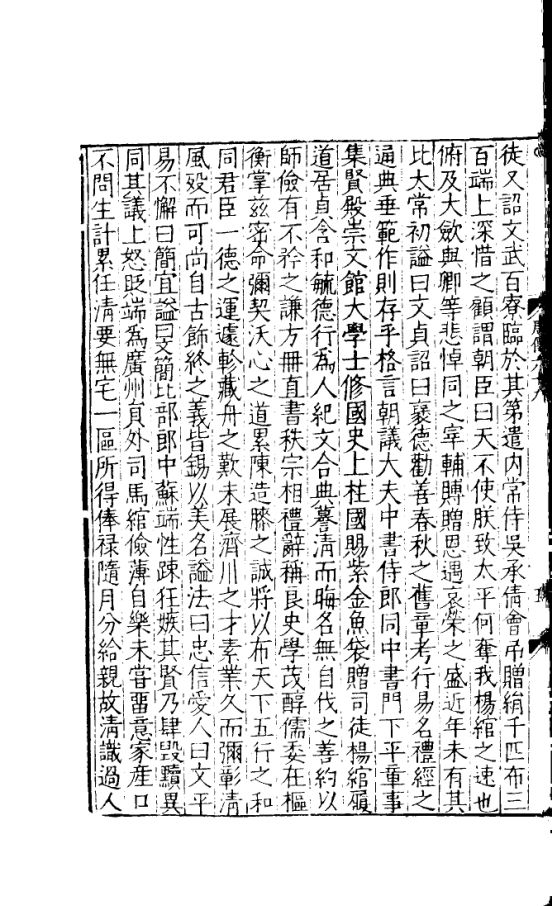 徒又詔文武百寮臨於其第遣内常侍吳承倩會弔贈絹千匹布三
百端上深惜之顧謂朝臣曰天不使朕致太平何奪我楊綰之速也
俯及大斂與卿等悲悼同之宰輔賻贈恩遇哀榮之盛近年未有其
比太常初謚曰文貞詔曰褒德勸善春秋之舊章考行易名禮經之
通典垂範作則存乎格言朝議大夫中書侍郎同中書門下平章事
集賢殿崇文館大學士修國史上柱國賜紫金魚袋贈司徒楊綰履
道居貞含和毓德行為人紀文合典謩清而晦名無自伐之善約以
師儉有不矜之謙方冊直書秩宗相禮辭稱良史學茂醇儒委在樞
衡掌兹密命彌契沃心之道累陳造膝之誠將以布天下五行之和
同君臣一德之運遽軫藏舟之歎未展濟川之才素業久而彌彰清
風殁而可尚自古飾終之義皆錫以美名謚法曰忠信愛人曰文平
易不懈曰簡宜謚曰文簡比部郎中蘇端性踈狂嫉其賢乃肆毀黷異
同其議上怒貶端為廣州員外司馬綰儉薄自樂未甞畱意家産口
不問生計累任清要無宅一區所得俸禄隨月分給親故清識過人